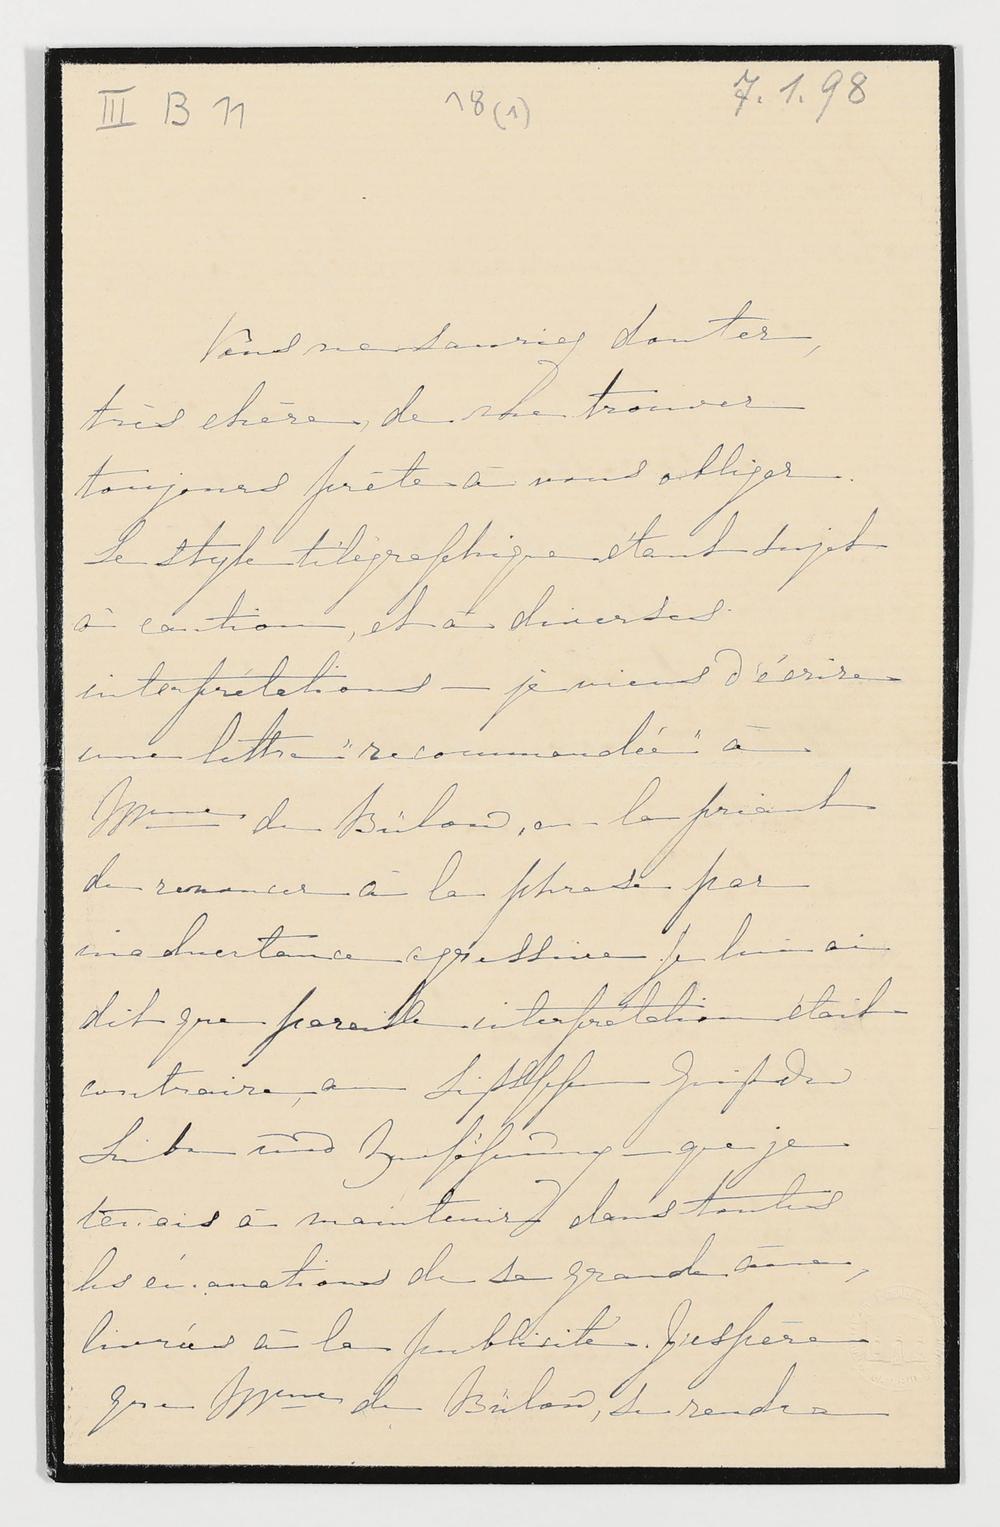 III B 11 18(1) 7.1.98
Vous ne sauriez douter,
très chère, de me trouver
toujours prête à vous obliger.
Le style télégraphique étant sujet
à caution, et à diverses
interprétations — je viens d'écrire
une lettre "recommandée" à
Mme de Bülow, en la priant
de renoncer à la phrase par
inadvertance agressive. Je lui ai
dit que pareille interprétation était
contraire, au
Liebe und — que je
tenais à maintenir dans toutes
les émanations de sa grande âme,
livrées à la publicité. J'espère
que Mme de Bülow, se rendra